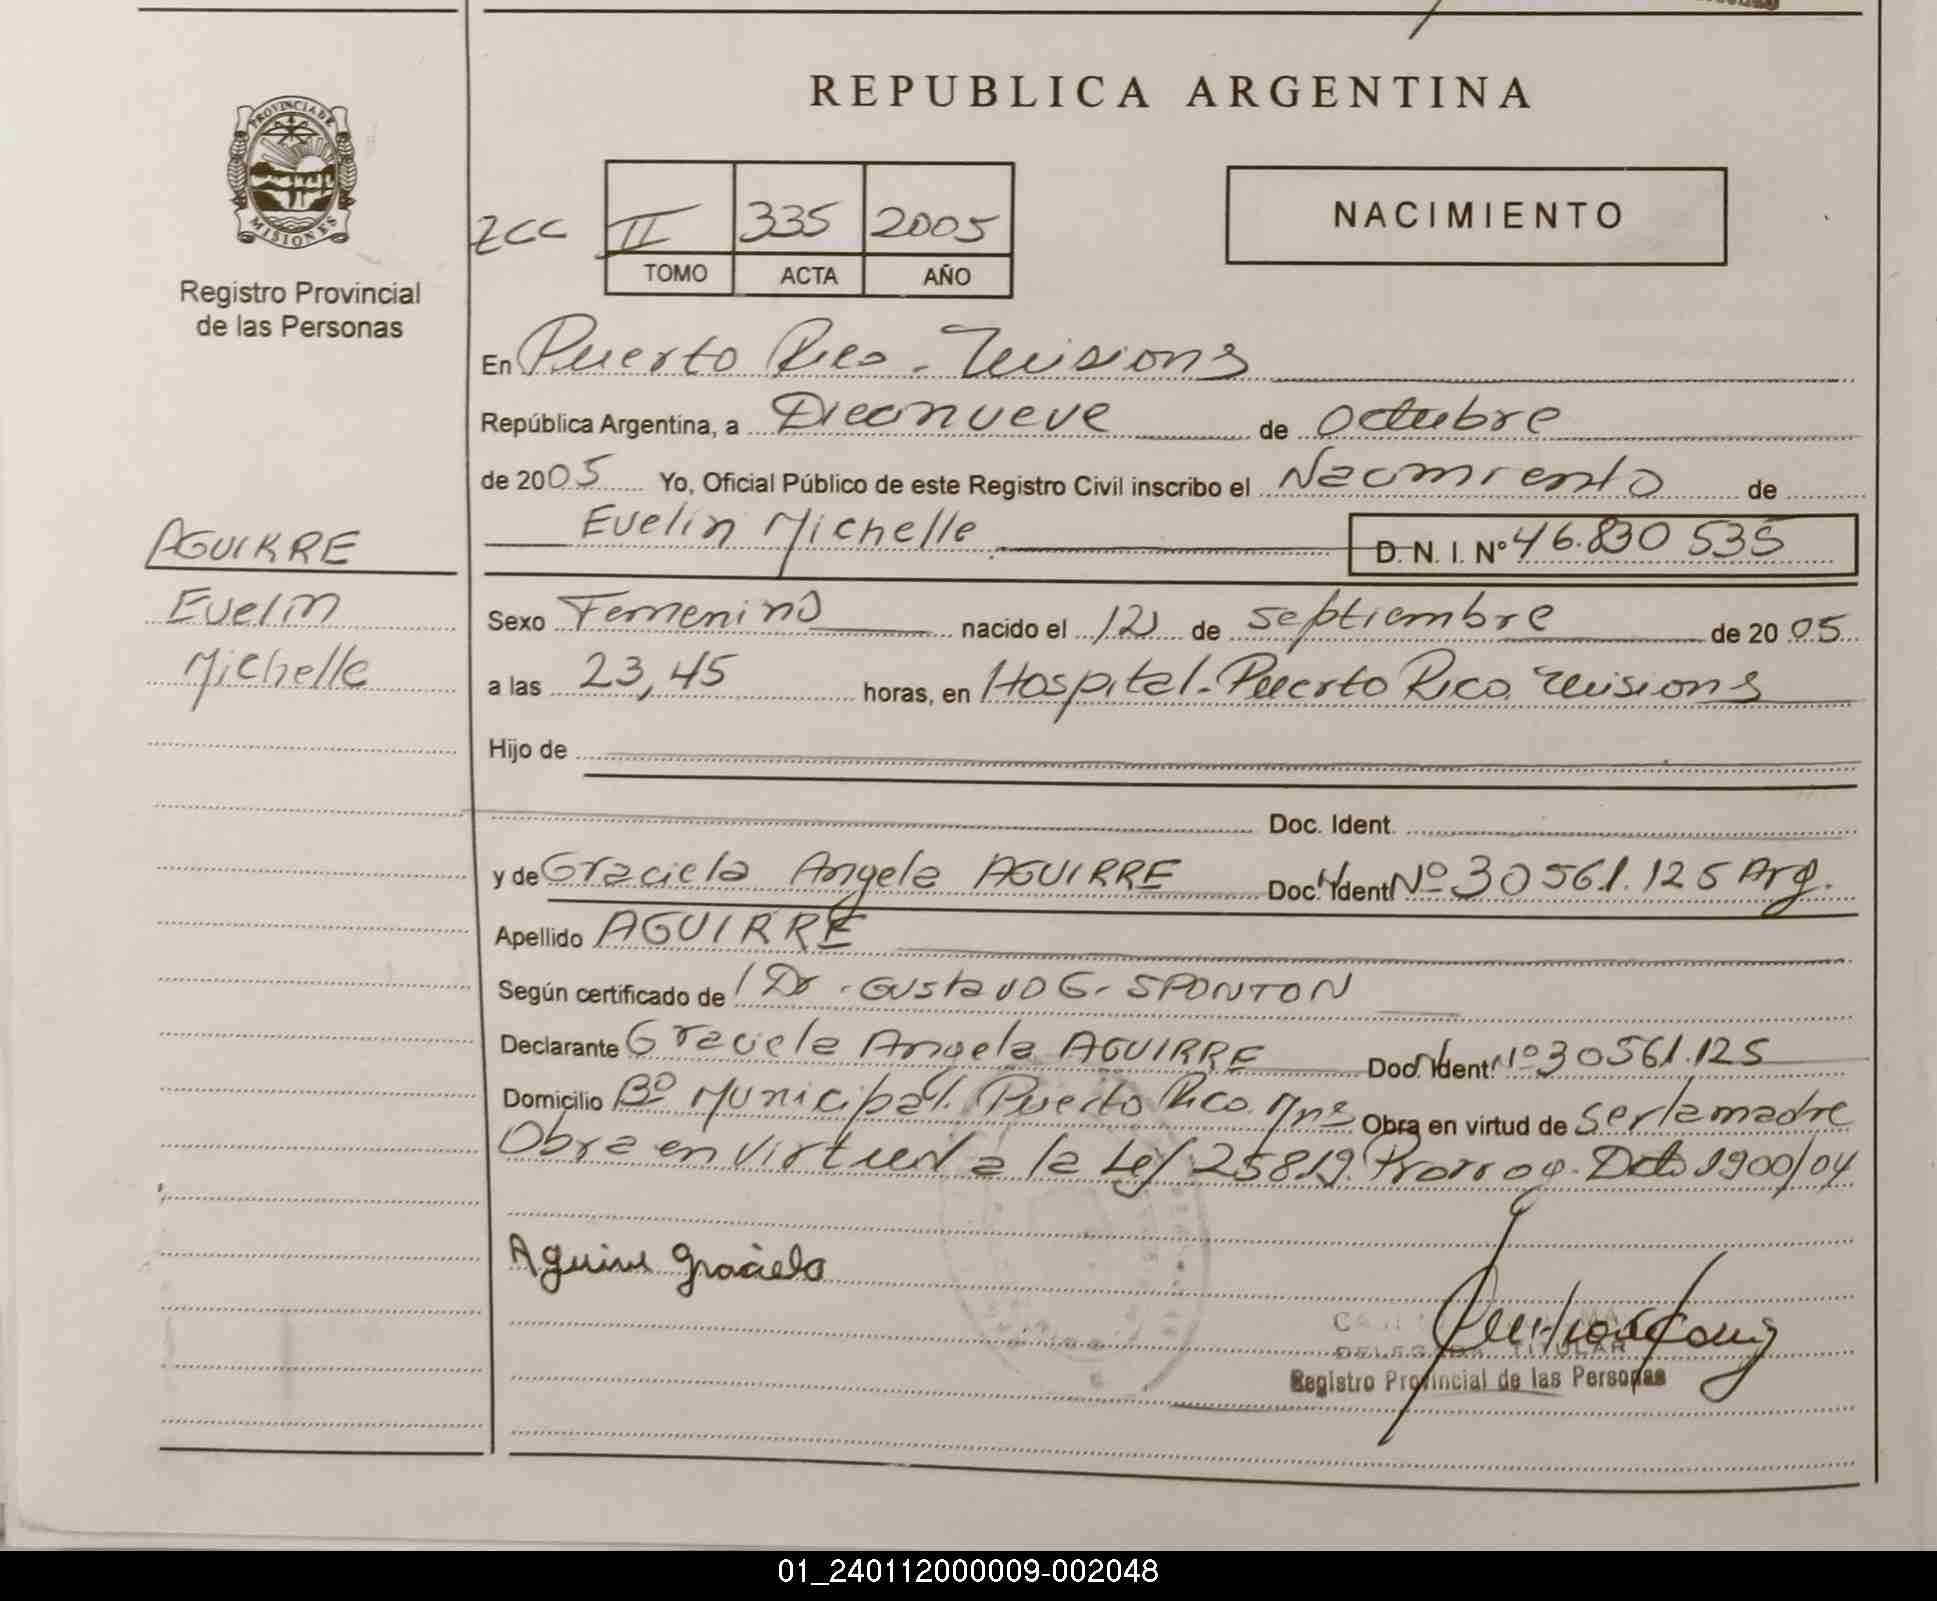 REPUBLICA ARGENTINA
PROVINCIA DE
MISIONES
Registro Provincial
de las Personas
ZCC II 335 2005
TOMO ACTA AÑO
NACIMIENTO
En Puerto Rico - Misiones
República Argentina, a Diecinueve de octubre
de 2005 Yo, Oficial Público de este Registro Civil inscribo el Nacimiento de
Evelin Michelle D. N. I. Nº 46.830 535
AGUIRRE
Evelin
Michelle
Sexo Femenino nacido el 12 de septiembre de 2005
a las 23,45 horas, en Hospital - Puerto Rico Misiones
Hijo de
Doc. Ident.
y de Graciela Angela AGUIRRE Doc. Ident Nº 30 561.125 Arg.
Apellido AGUIRRE
Según certificado de Dr. Gustavo G. SPONTON
Declarante Graciela Angela AGUIRRE Doc. Ident. Nº 30561.125
Domicilio Bº Municipal. Puerto Rico. Mns Obra en virtud de ser la madre
Obra en virtud a la Ley 25819. Prorrog. Dcto 1900/04
Aguirre Graciela
DELEGADA TITULAR
Registro Provincial de las Personas
01_240112000009-002048